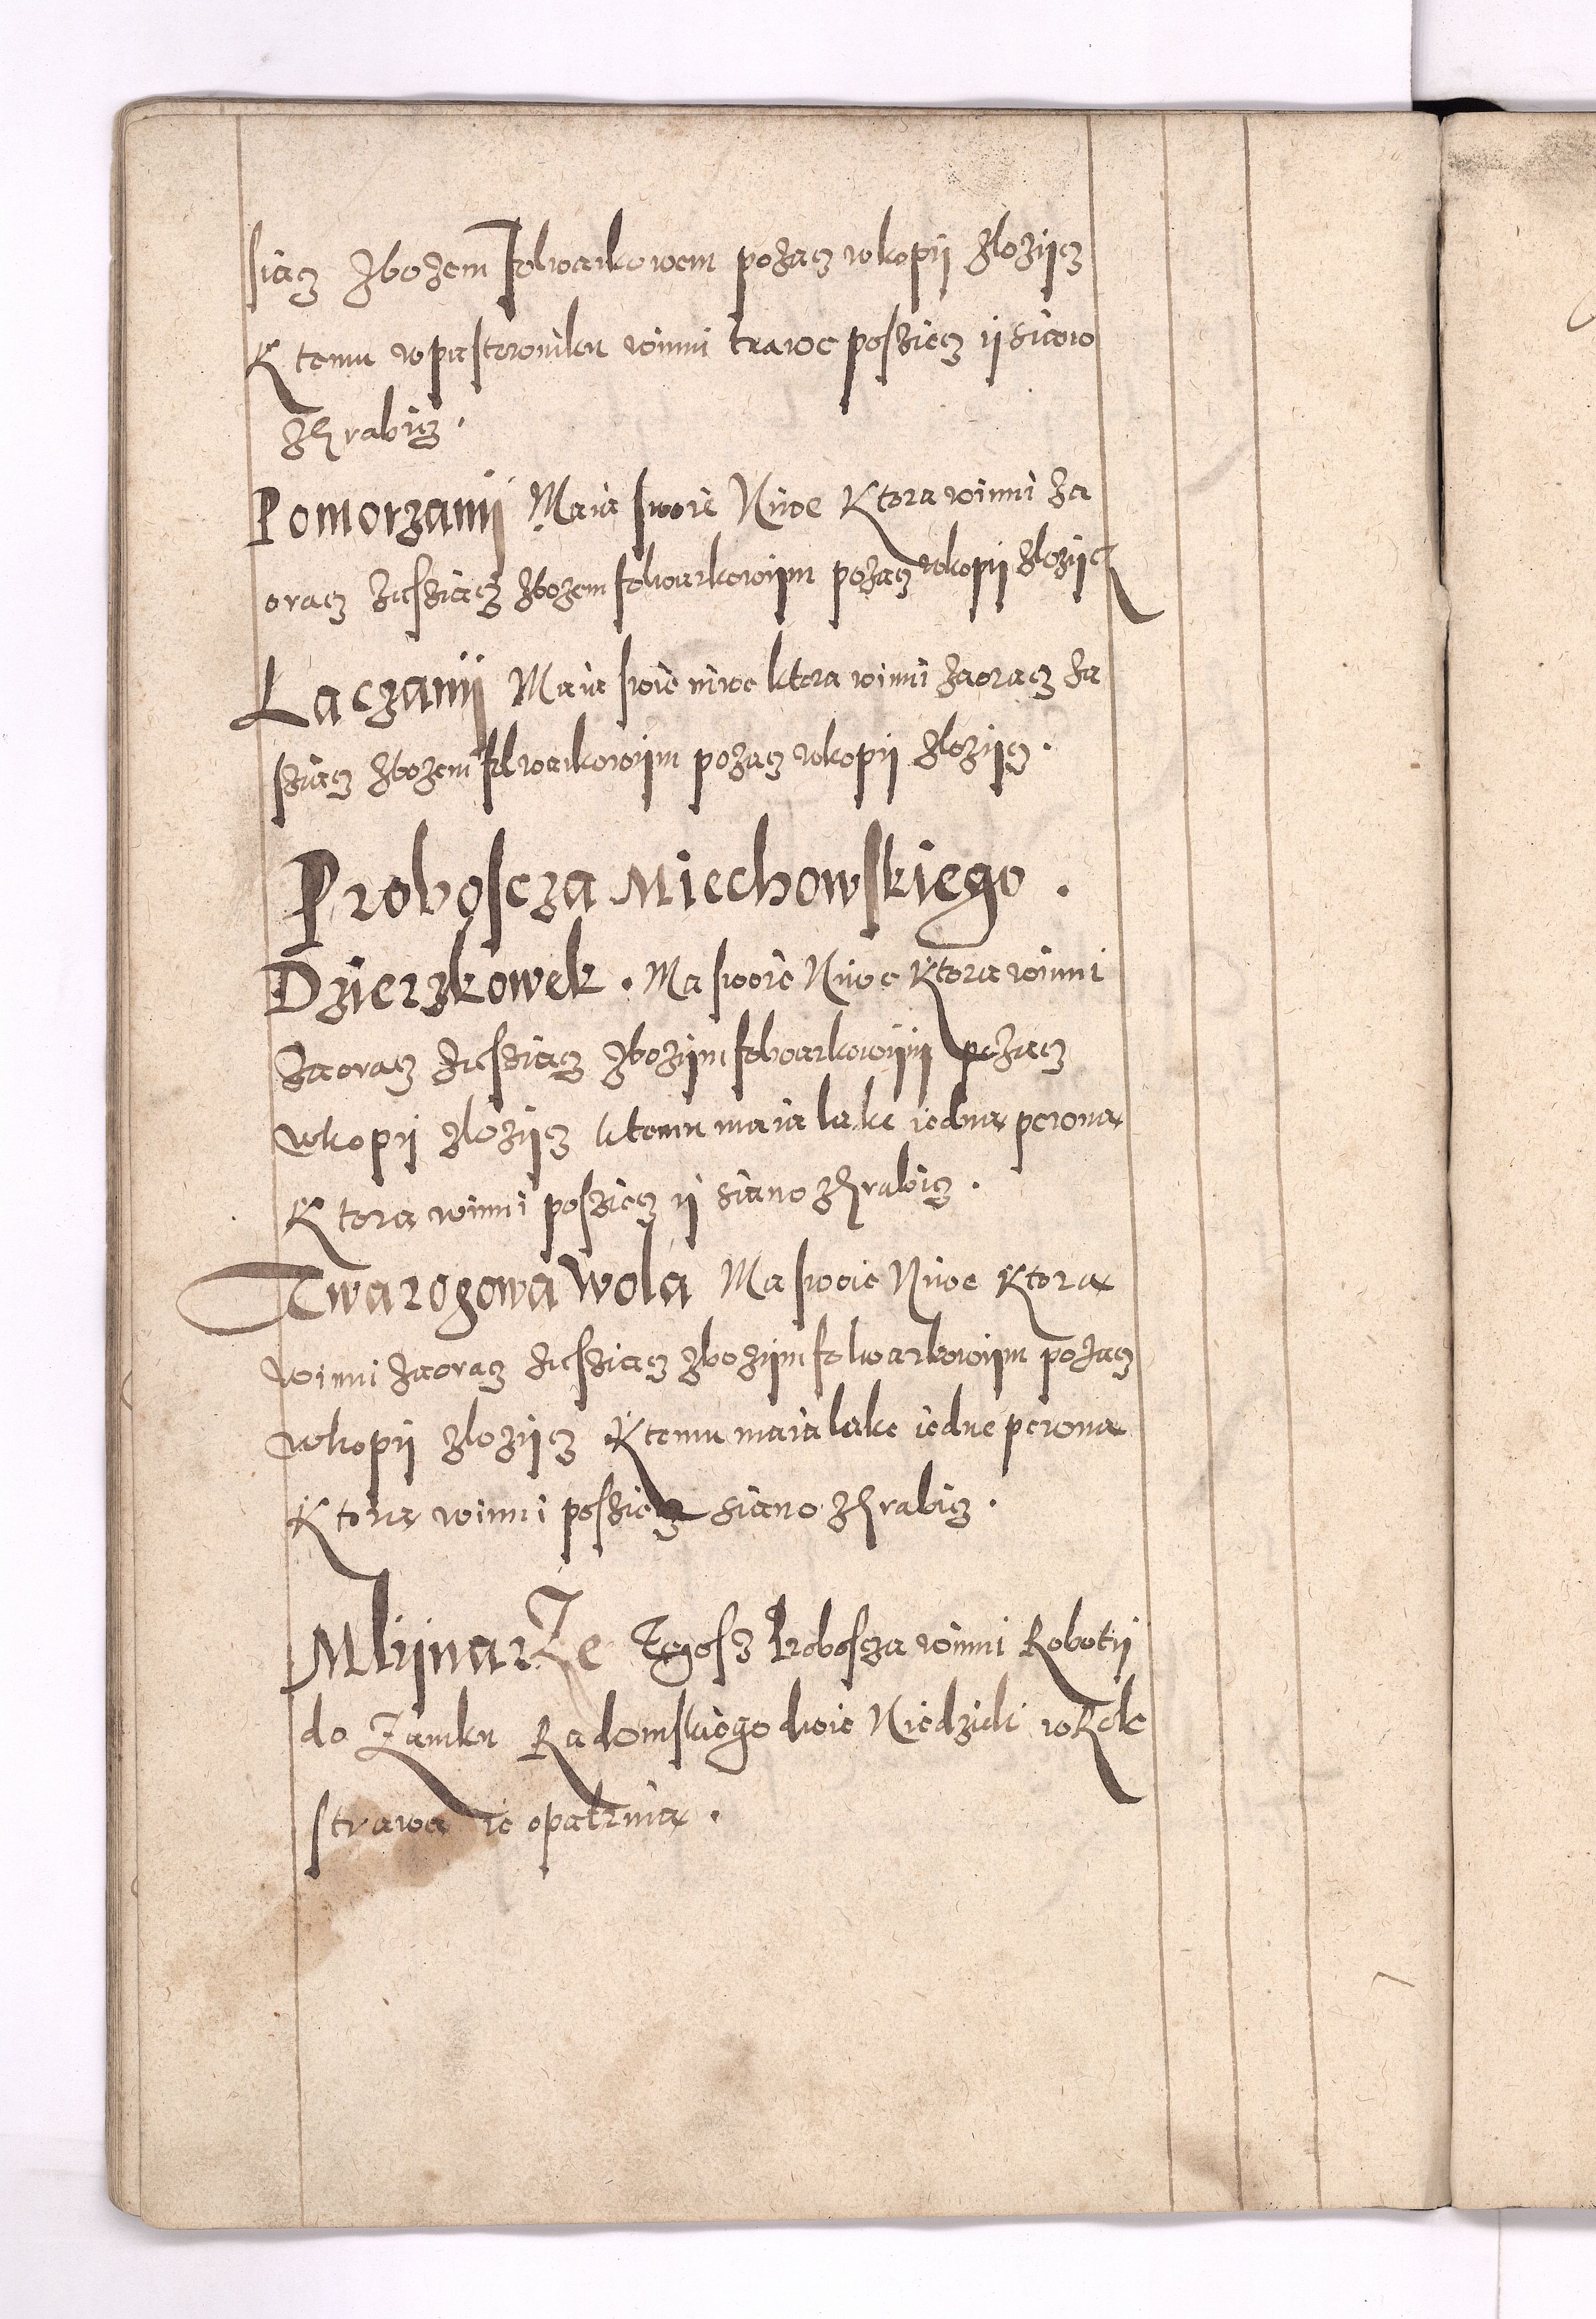 siacz zbozem folwarkowem pozacz wkopÿ zlozÿcz
K temu wpastewniku winni trawe posziecz ÿ siano
zgrabicz.
Pomorzanÿ Maia swoie Niwe Ktora winni za
oracz zasziacz zbozem folwarkowÿm pozacz wkopÿ zlozÿcz
Laczanÿ Maia swoie niwe ktora winni zaoracz za
sziacz zbozem folwarkowÿm pozacz wkopÿ zlozÿcz.
Proboscza Miechowskiego.
Dzierzkowek. Ma swoie Niwe Ktora winni
zaoracz zasziacz zbozÿm folwarkowÿm pozacz
wkopÿ zlozÿcz ktemu maia lake iedna pewna
Ktora winni posziecz ÿ siano zgrabicz.
Twarogowa Wola Ma swoie Niwe Ktora
winni zaoracz zasziacz zbozÿm folwarkowÿm pozacz
wkopÿ zlozÿcz Ktemu maia lake iedne pewna
Ktora winni posziecz siano zgrabicz.
Mlÿnarze Tegosz Proboscza winni Robotÿ
do Zamku Radomskiego dwie Niedzieli wRok
strawa ie opatrzuia.